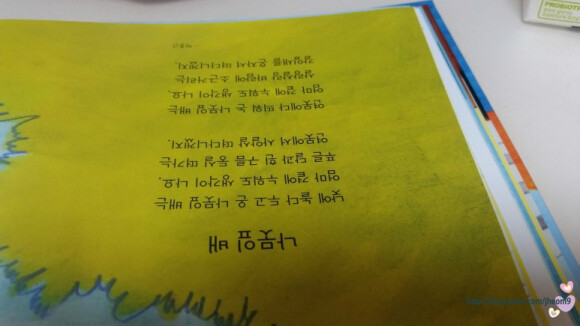 나뭇잎 배
낮에 놀다 두고 온 나뭇잎 배는
엄마 곁에 누워도 생각이 나요.
푸른 달과 흰 구름 둥실 떠가는
연못에서 사알살 떠다니겠지.
연못에다 띄워 논 나뭇잎 배는
엄마 곁에 누워도 생각이 나요.
살랑살랑 바람에 소곤거리는
갈잎새를 혼자서 떠다니겠지.
박홍근
PROBIOTI